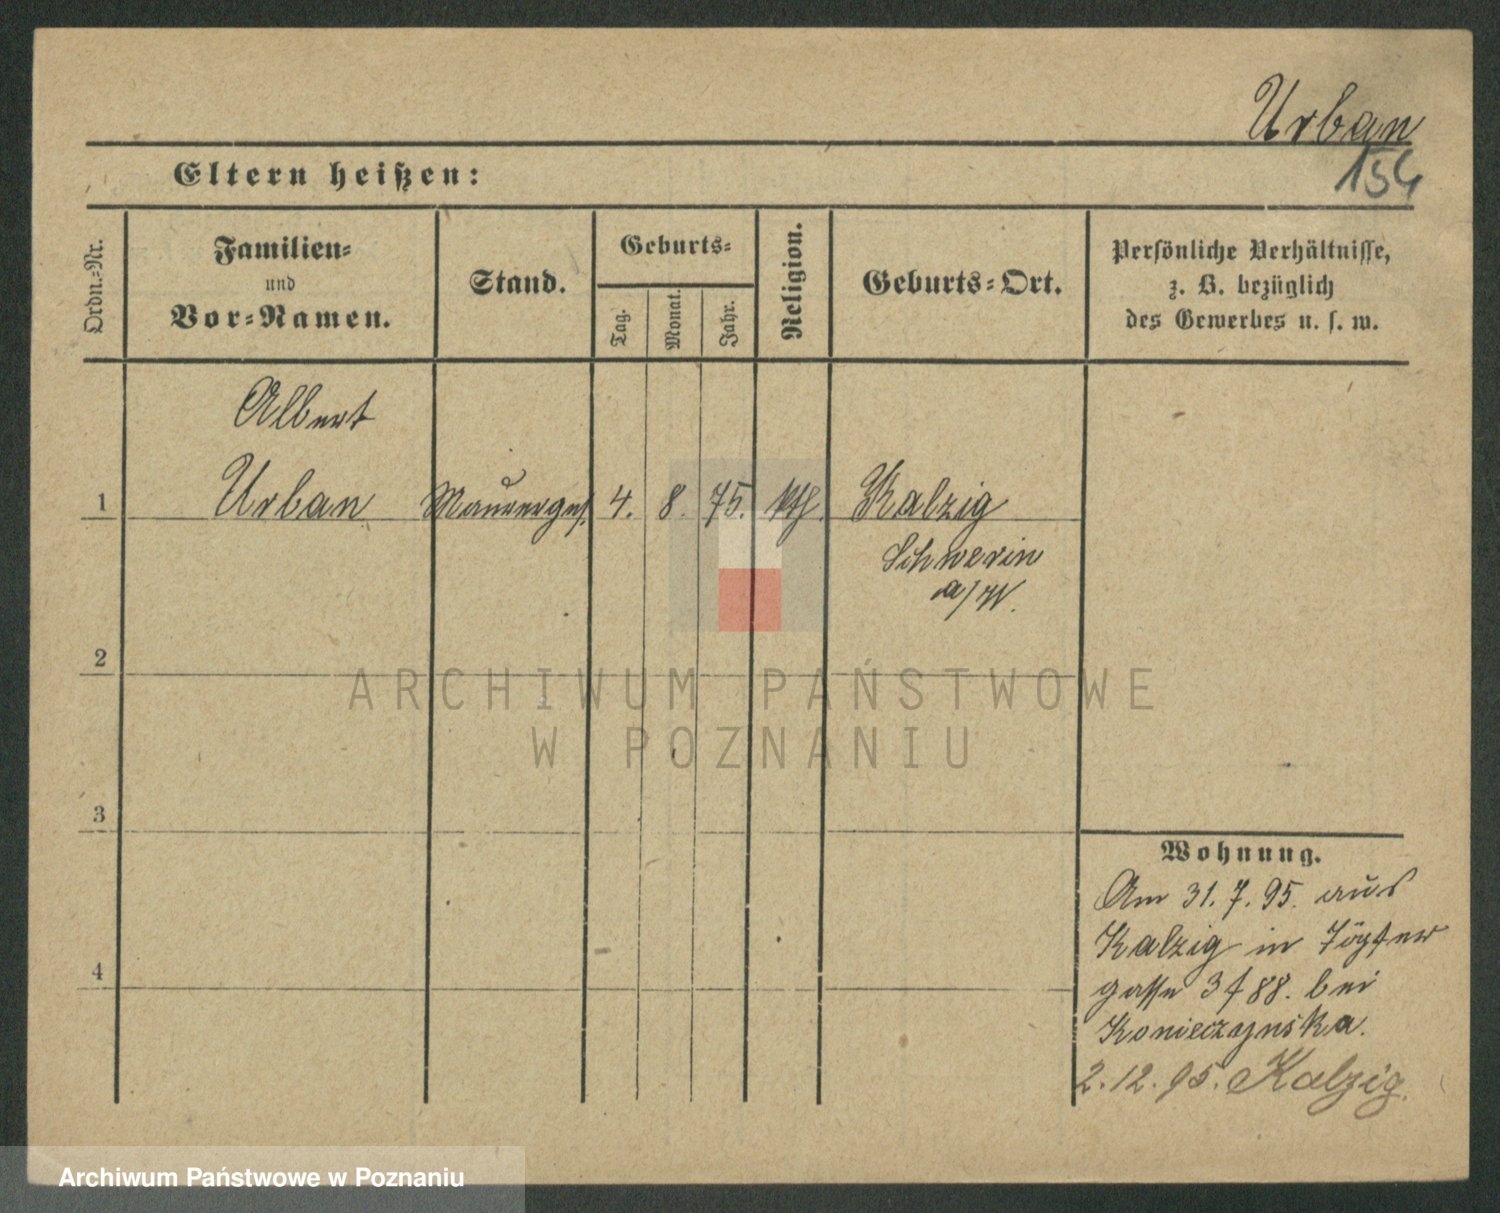 Urban
154
Eltern heißen:
Ordn.-Nr.
Familien-
und
Vor-Namen.
Stand.
Geburts-
Tag.
Monat.
Jahr.
Religion.
Geburts-Ort.
Persönliche Verhältnisse,
z. B. bezüglich
des Gewerbes u. s. w.
Albert
1 Urban Maurerges. 4. 8. 75. kth. Kalzig
Schwerin
a/W.
2
ARCHIWUM PAŃSTWOWE
W POZNANIU
3
Wohnung.
Am 31. 7. 95. aus
Kalzig in Töpfer
4
gasse 3 f 88. bei
Konieczynska.
2. 12. 95. Kalzig.
Archiwum Państwowe w Poznaniu